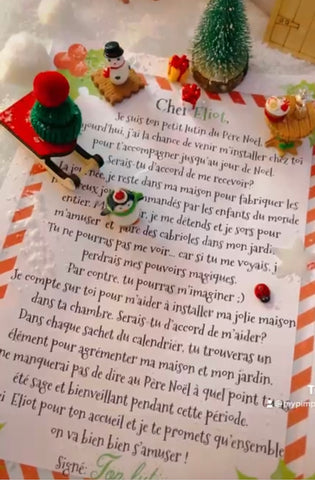 Cher Eliot,
Je suis ton petit lutin du Père Noël.
jourd'hui, j'ai la chance de venir m'installer chez toi
pour t'accompagner jusqu'au jour de Noël.
Serais-tu d'accord de me recevoir?
La jou née, je reste dans ma maison pour fabriquer les
eux mandés par les enfants du monde
entier. r, je me détends et je sors pour
m'amuser et faire des cabrioles dans mon jardin
Tu ne pourras pas me voir... car si tu me voyais, j
perdrais mes pouvoirs magiques.
Par contre, tu pourras m'imaginer ;)
Je compte sur toi pour m'aider à installer ma jolie maison
dans ta chambre. Serais-tu d'accord de m'aider?
Dans chaque sachet du calendrier, tu trouveras un
élément pour agrémenter ma maison et mon jardin.
ne manquerai pas de dire au Père Noël à quel point tu
été sage et bienveillant pendant cette période.
i Eliot pour ton accueil et je te promets qu'ensemble
on va bien bien s'amuser !
Signé: Ton lutin